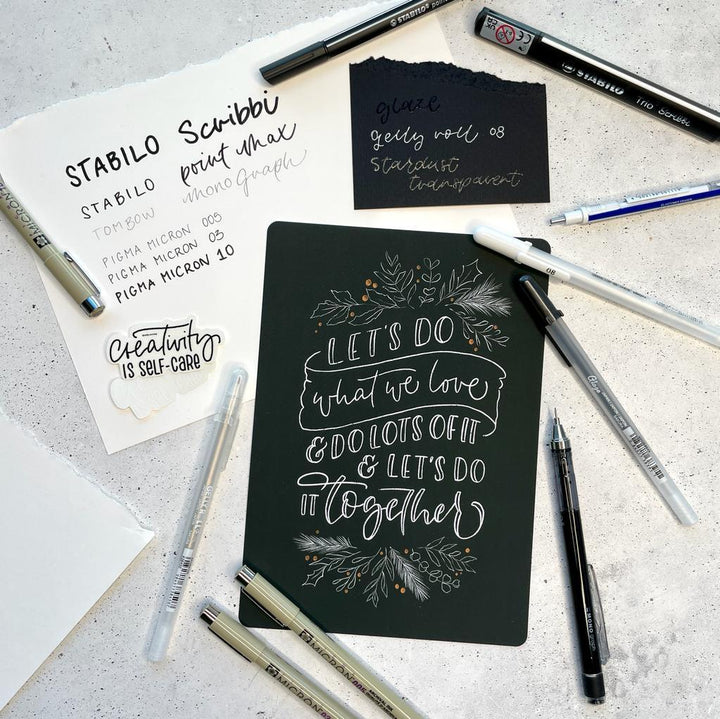 STABILO Scribbi
STABILO point Max
TOMBOW mono graph
PIGMA MICRON 005
PIGMA MICRON 03
PIGMA MICRON 10
Creativity
IS SELF-CARE
glaze
gelly roll 08
Stardust
transparent
LET'S DO
what we love
& DO LOTS OF IT
& LET'S DO
IT together
STABILO
STABILO Trio Scribbi
08
Glaze
MICRON
MICRON
MICRON
MONO